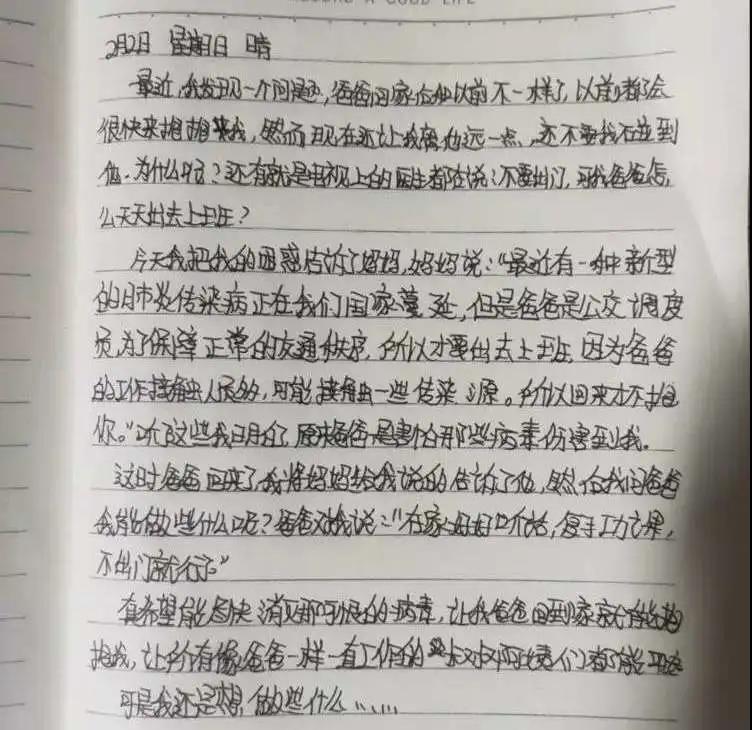 RECORD A GOOD LIFE
2月2日 星期日 晴
最近,我发现一个问题,爸爸回家后和以前不一样了,以前都会
很快来抱抱我,然而现在还让我离他远一点,还不要我碰到
他。为什么呢?还有就是电视上的医生都在说:不要出门,可我爸爸怎
么天天出去上班?
今天我把我的困惑告诉了妈妈,妈妈说:“最近有一种新型
的肺炎传染病正在我们国家蔓延,但是爸爸是公交调度
员,为了保障正常的交通秩序,所以才要出去上班,因为爸爸
的工作接触人员多,可能接触一些传染源。所以回来才不抱
你。”听了这些我明白了,原来爸爸是害怕那些病毒伤害到我。
这时爸爸回来了,我将妈妈给我说的告诉了他,然后我问爸爸
我能做些什么呢?爸爸对我说:“在家好好听话,复习功课,
不出门就行了。”
真希望能尽快消灭那可恨的病毒,让我爸爸回到家就能抱
抱我,让所有像爸爸一样一直工作的叔叔阿姨们都能平安
可是我还是想做些什么……